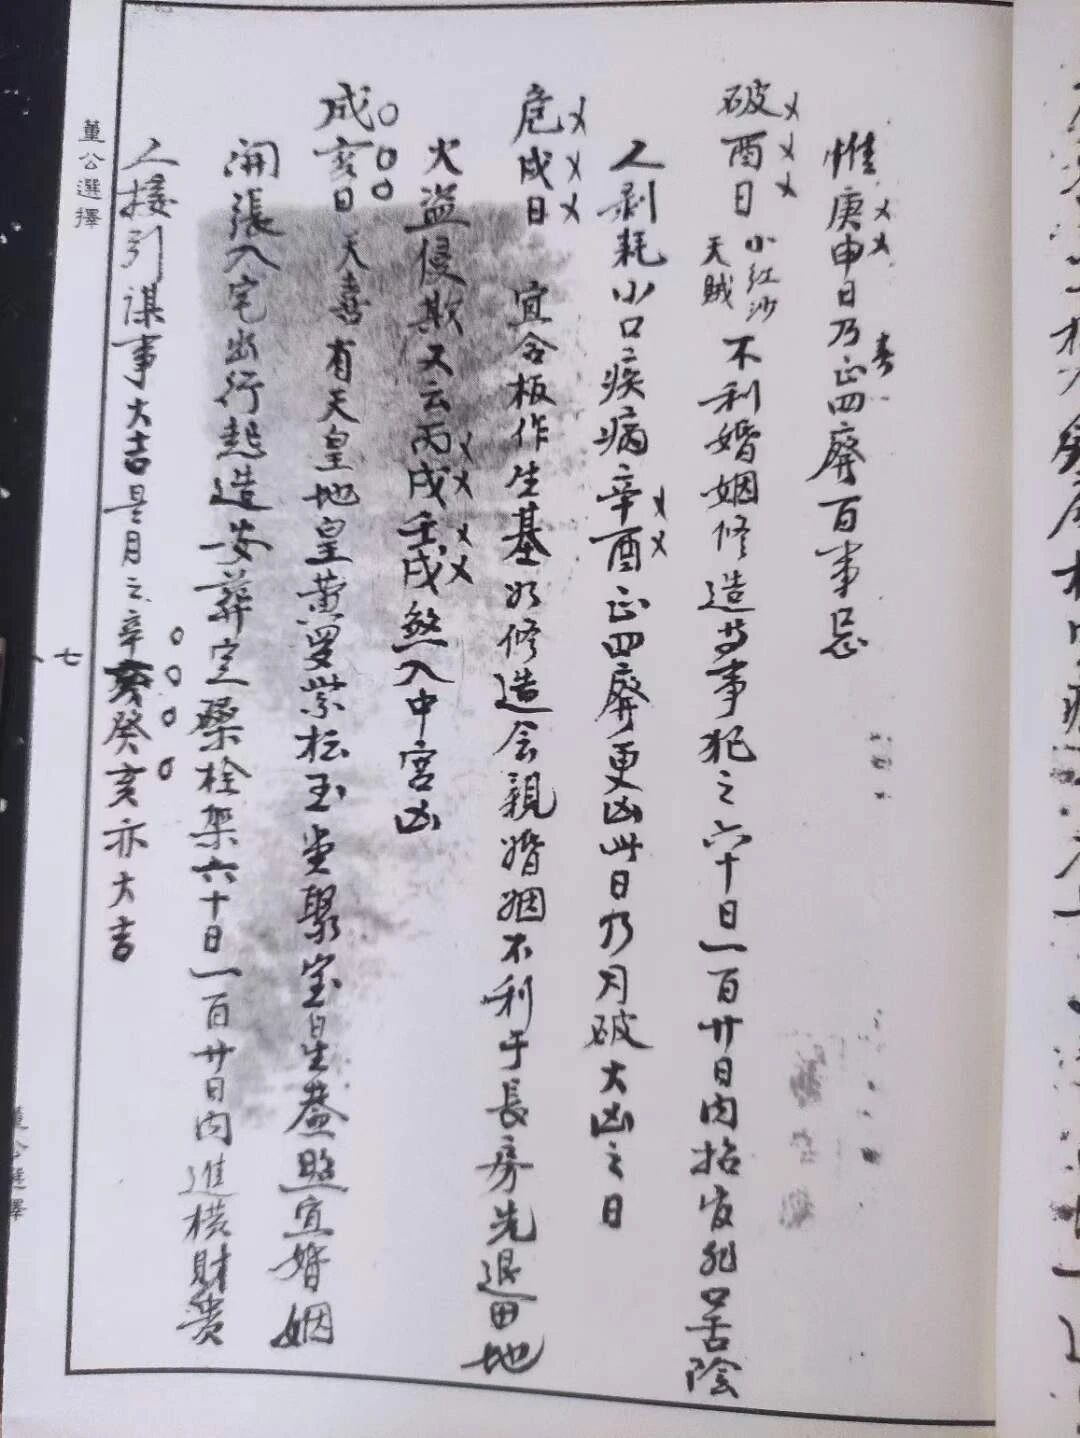 惟庚申日乃正四廢百事忌
春
破酉日 小紅沙 天賊 不利婚姻修造等事犯之六十日一百廿日内招官非口舌陰
人剥耗小口疾病辛酉正四廢更凶此日乃月破大凶之日
危戌日 宜合板作生基如修造会親婚姻不利于長房先退田地
火盗侵欺又云丙戌壬戌煞入中宮凶
成亥日 天喜有天皇地皇黄罗紫檀玉堂聚宝星蓋照宜婚姻
開張入宅出行起造安葬定磉栓架六十日一百廿日内進横財贵
人接引謀事大吉是月之辛亥癸亥亦大吉
董公選擇
七
董公選擇